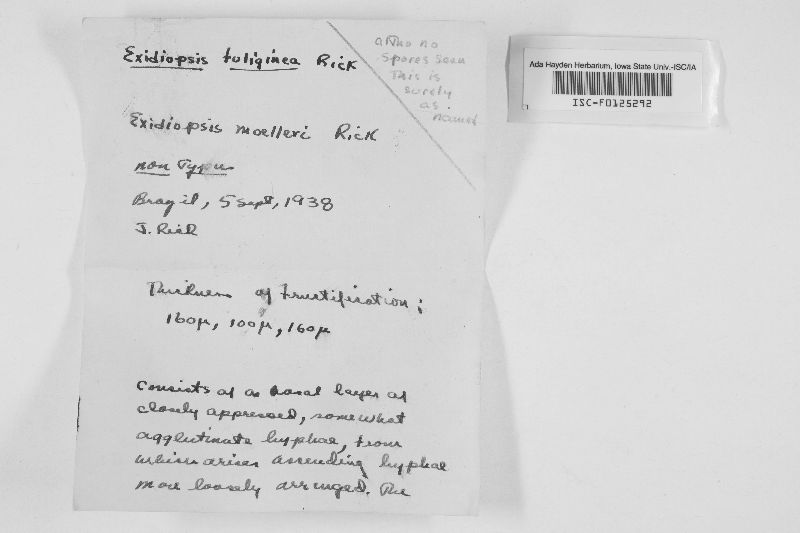 Exidiopsis fuliginea Rick
altho no
spores seen
This is
surely
as
named
Exidiopsis moelleri Rick
non Typus
Brazil, 5 Sept, 1938
J. Rick
Thickness of fructification;
160µ, 100µ, 160µ
Consists of a basal layer of
closely appressed, somewhat
agglutinate hyphae, from
which arises ascending hyphae
more loosely arranged. The
Ada Hayden Herbarium, Iowa State Univ.-ISC/IA
ISC-F0125292